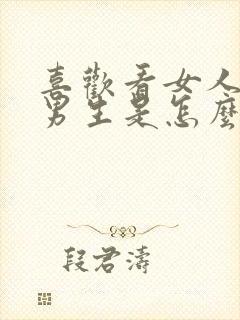 喜歡看女人
男生是怎麼
段君濤